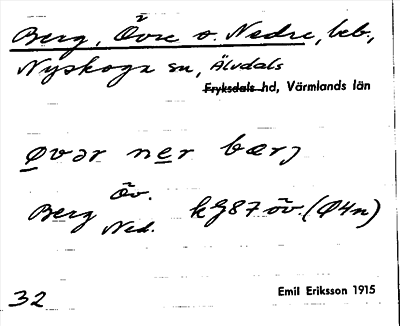 Berg, Övre o. Nedre, beb.,
Nyskoga sn, Älvdals
Fryksdals hd, Värmlands län
øvər ner bærj
Öv.
Berg kG87 öv. (Ø4n)
Ned.
32 Emil Eriksson 1915